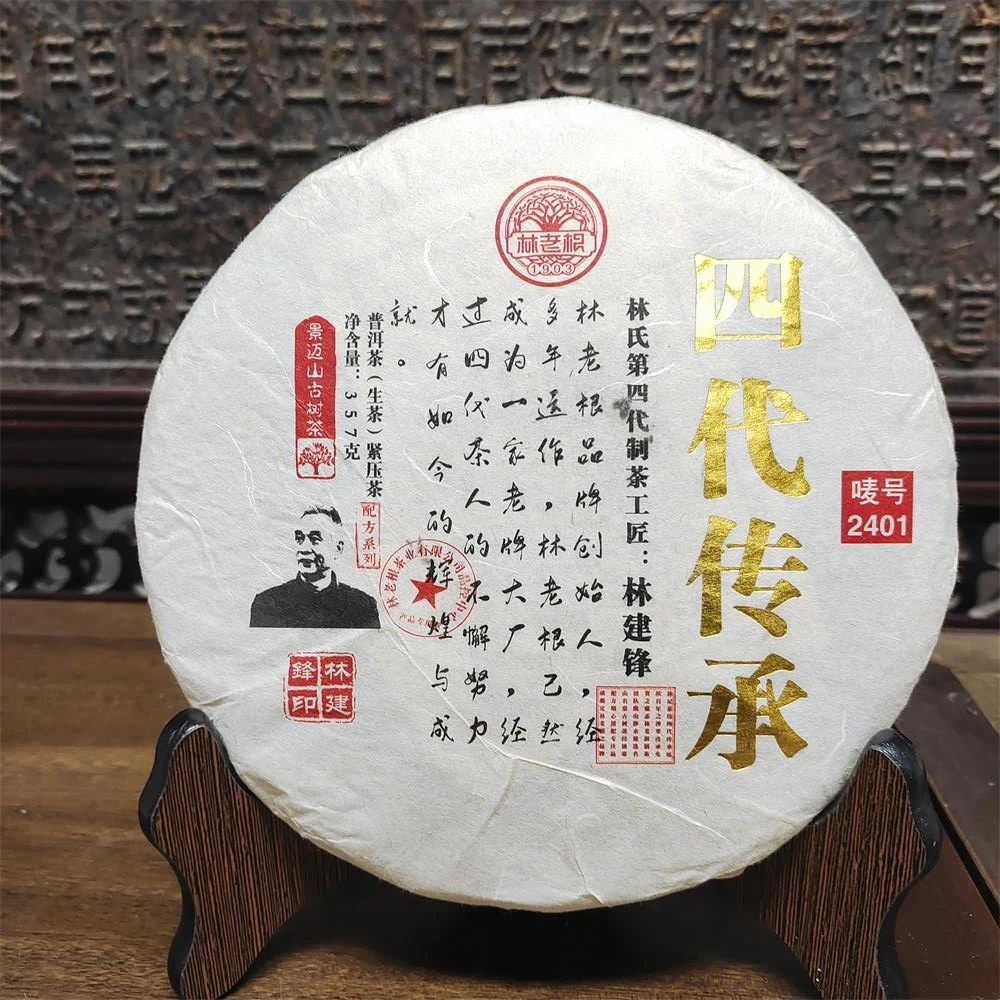 林老根
1903
四代传承
唛号
2401
林氏第四代制茶工匠：林建锋
林老根品牌创始人，经
多年运作，林老根已然
成为一家老牌大厂，经
过四代茶人的不懈努力
才有如今的辉煌与成
就。
普洱茶（生茶）紧压茶
净含量：357克
配方系列
景迈山古树茶
林建
鋒印
林老根茶业有限公司